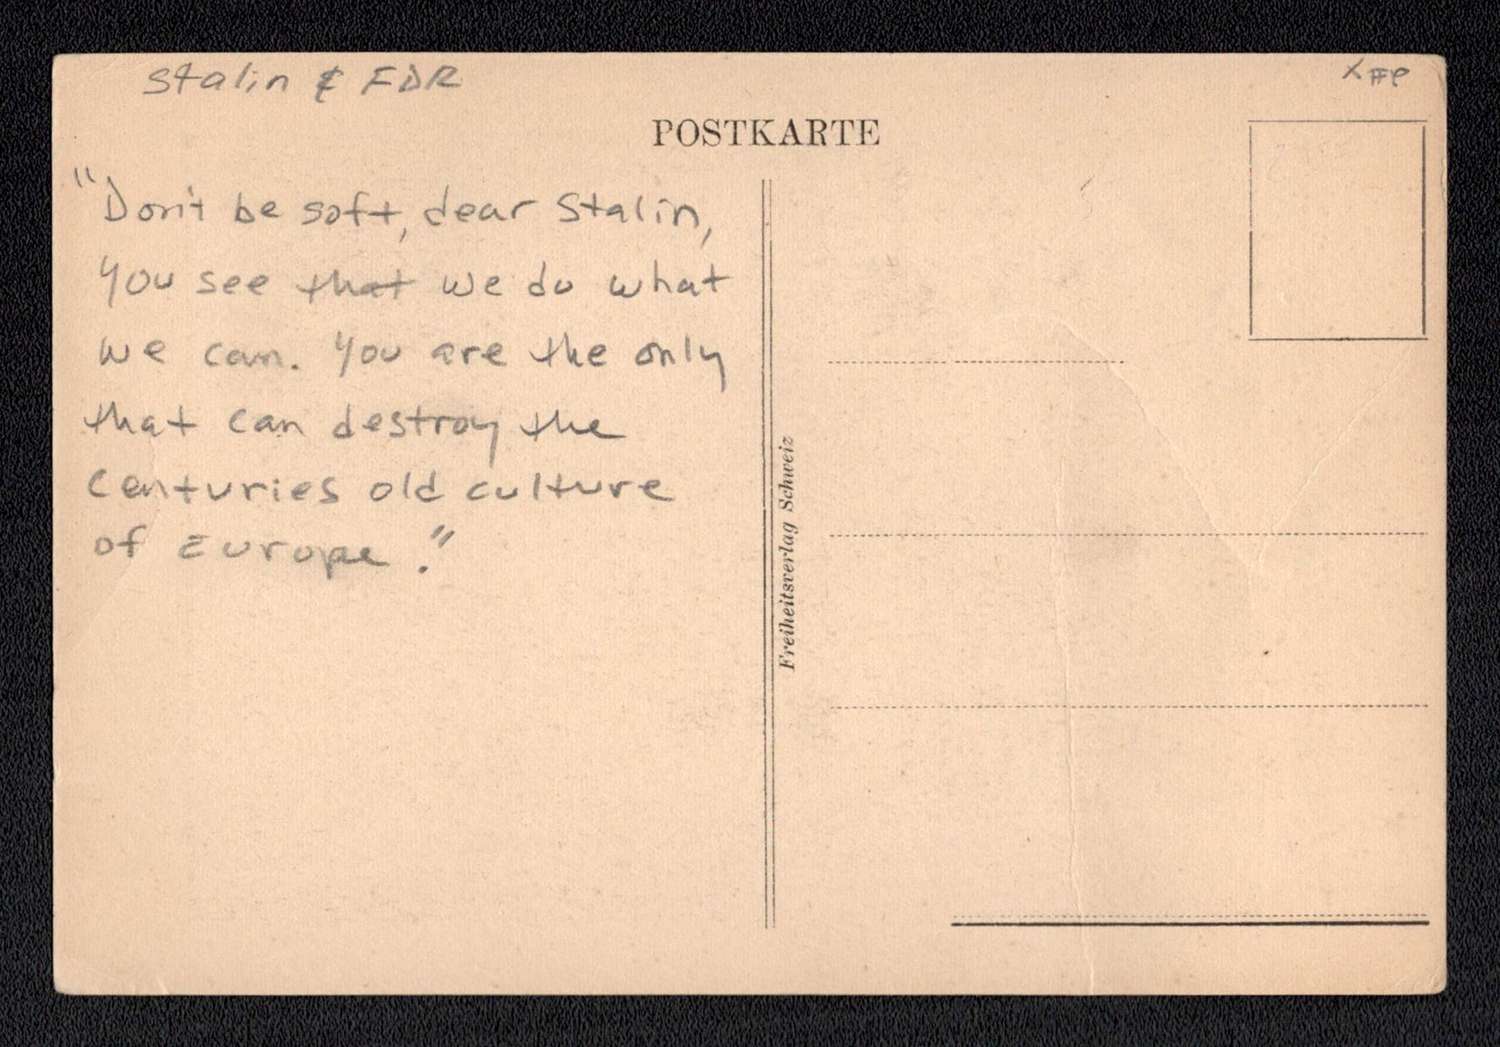 Stalin & FDR
POSTKARTE
"Don't be soft, dear Stalin,
you see that we do what
we can. You are the only
that can destroy the
centuries old culture
of Europe."
Freiheitsverlag Schweiz